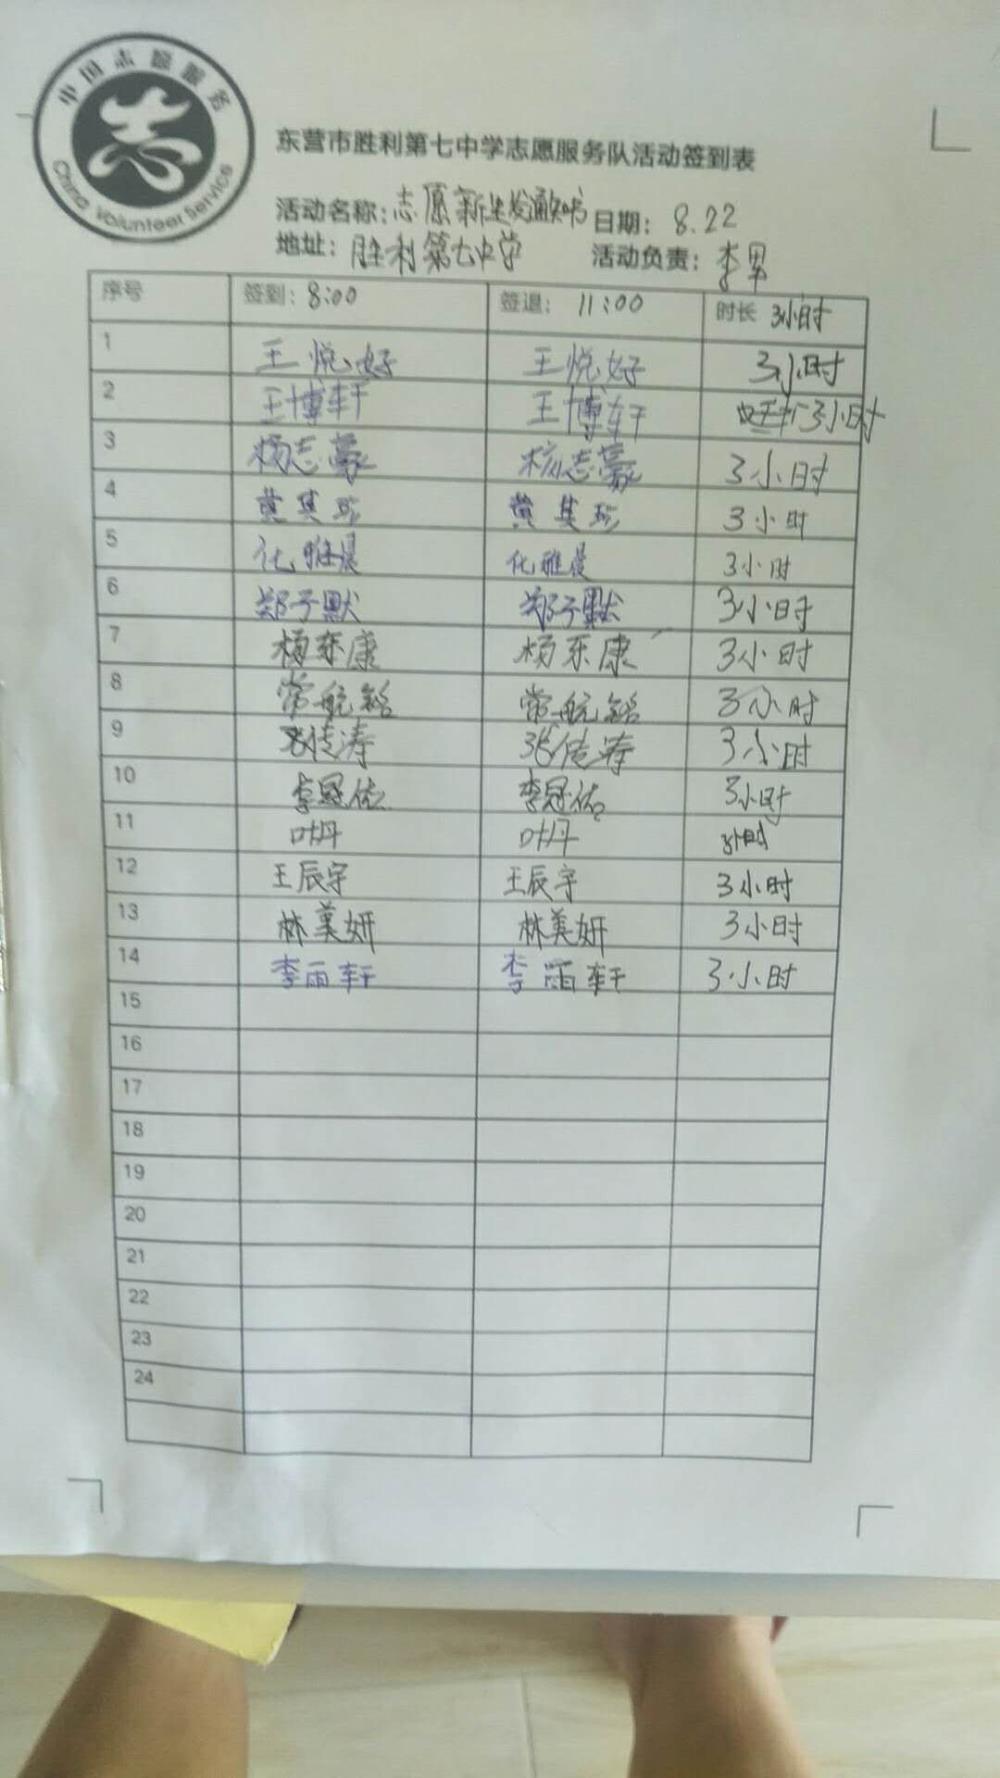 中国志愿服务
志
China Volunteer Service
东营市胜利第七中学志愿服务队活动签到表
活动名称:志愿新生发通知书 日期: 8.22
地址: 胜利第七中学 活动负责: 李军
序号 签到: 8:00 签退: 11:00 时长 3小时
1 王悦好 王悦好 3小时
2 王博轩 王博轩 3小时
3 杨志豪 杨志豪 3小时
4 黄其珍 黄其珍 3小时
5 化雅晨 化雅晨 3小时
6 郑子默 郑子默 3小时
7 杨东康 杨东康 3小时
8 常航铭 常航铭 3小时
9 张传涛 张传涛 3小时
10 李冠佑 李冠佑 3小时
11 叶丹 叶丹 3小时
12 王辰宇 王辰宇 3小时
13 林美妍 林美妍 3小时
14 李雨轩 李雨轩 3小时
15
16
17
18
19
20
21
22
23
24